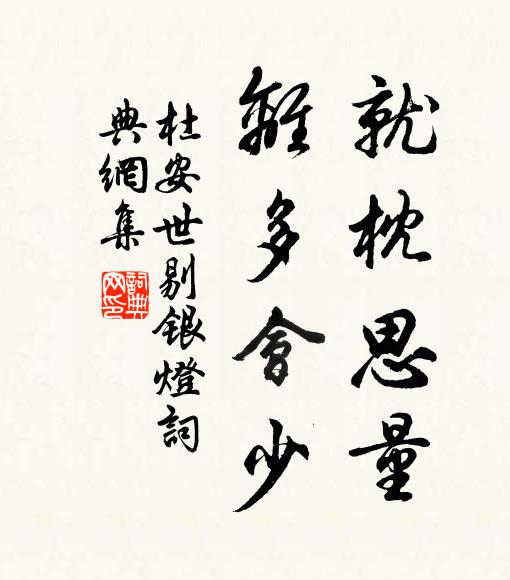 就枕思量
離多會少
杜安世剔銀燈詞
典網集
詞典網印